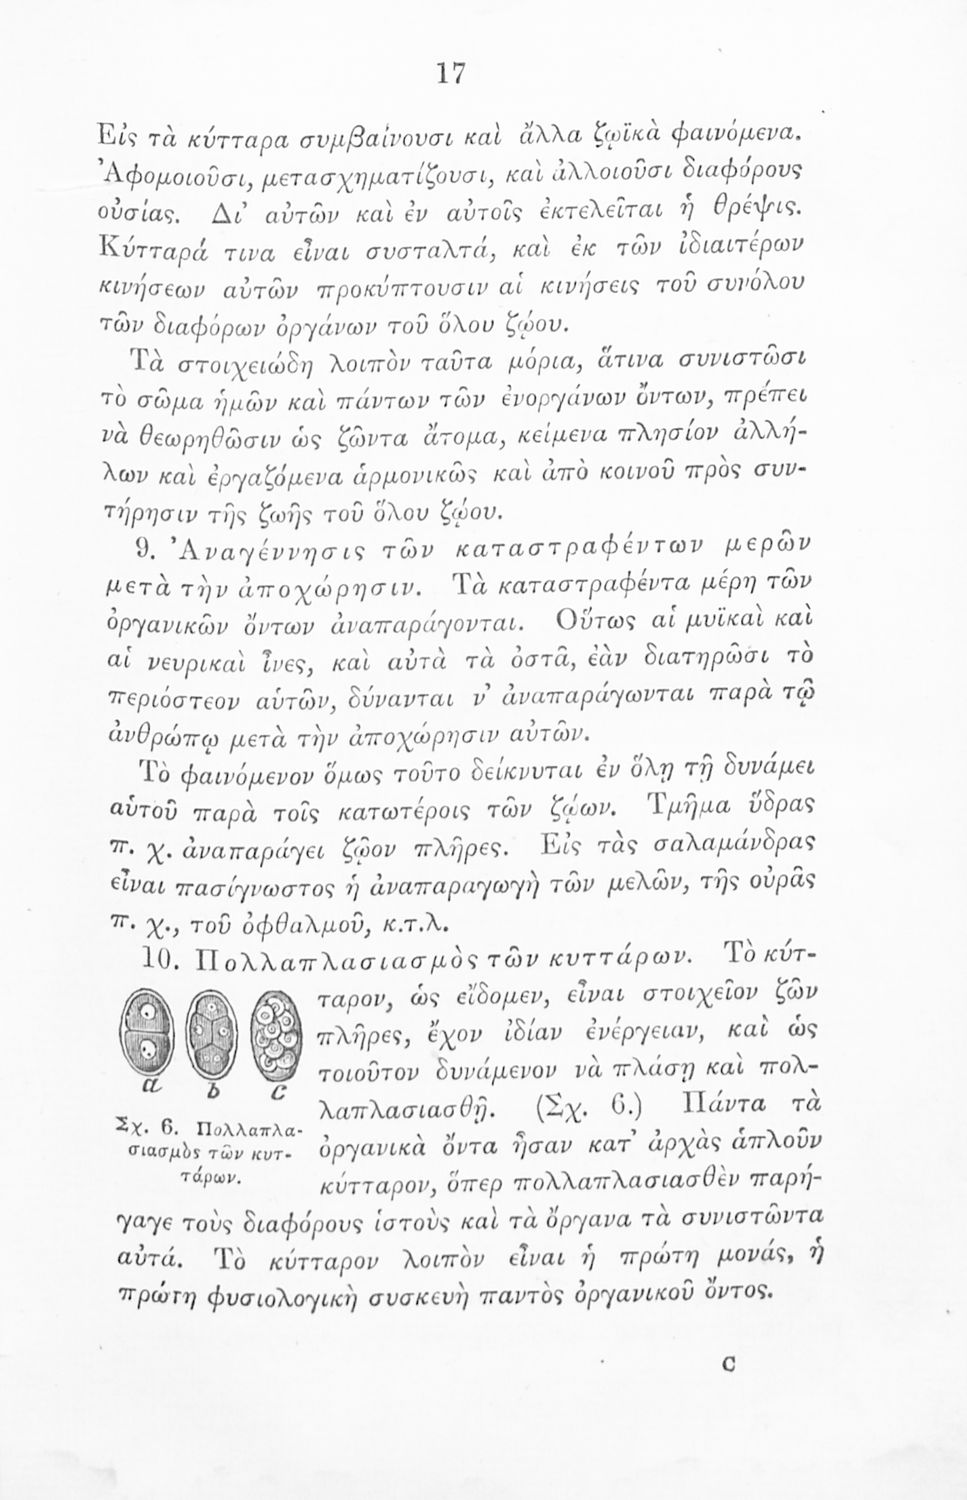 17
Εἰς τὰ κύτταρα συμβαίνουσι καὶ ἄλλα ζῳϊκὰ φαινόμενα.
Ἀφομοιοῦσι, μετασχηματίζουσι, καὶ ἀλλοιοῦσι διαφόρους
οὐσίας. Δι’ αὐτῶν καὶ ἐν αὐτοῖς ἐκτελεῖται ἡ θρέψις.
Κύτταρά τινα εἶναι συσταλτά, καὶ ἐκ τῶν ἰδιαιτέρων
κινήσεων αὐτῶν προκύπτουσιν αἱ κινήσεις τοῦ συνόλου
τῶν διαφόρων ὀργάνων τοῦ ὅλου ζῴου.
Τὰ στοιχειώδη λοιπὸν ταῦτα μόρια, ἅτινα συνιστῶσι
τὸ σῶμα ἡμῶν καὶ πάντων τῶν ἐνοργάνων ὄντων, πρέπει
νὰ θεωρηθῶσιν ὡς ζῶντα ἄτομα, κείμενα πλησίον ἀλλή-
λων καὶ ἐργαζόμενα ἁρμονικῶς καὶ ἀπὸ κοινοῦ πρὸς συν-
τήρησιν τῆς ζωῆς τοῦ ὅλου ζῴου.
9. Ἀναγέννησις τῶν καταστραφέντων μερῶν
μετὰ τὴν ἀποχώρησιν. Τὰ καταστραφέντα μέρη τῶν
ὀργανικῶν ὄντων ἀναπαράγονται. Οὕτως αἱ μυϊκαὶ καὶ
αἱ νευρικαὶ ἶνες, καὶ αὐτὰ τὰ ὀστᾶ, ἐὰν διατηρῶσι τὸ
περιόστεον αὐτῶν, δύνανται ν’ ἀναπαράγωνται παρὰ τῷ
ἀνθρώπῳ μετὰ τὴν ἀποχώρησιν αὐτῶν.
Τὸ φαινόμενον ὅμως τοῦτο δείκνυται ἐν ὅλῃ τῇ δυνάμει
αὑτοῦ παρὰ τοῖς κατωτέροις τῶν ζῴων. Τμῆμα ὕδρας
π. χ. ἀναπαράγει ζῷον πλῆρες. Εἰς τὰς σαλαμάνδρας
εἶναι πασίγνωστος ἡ ἀναπαραγωγὴ τῶν μελῶν, τῆς οὐρᾶς
π. χ., τοῦ ὀφθαλμοῦ, κ.τ.λ.
10. Πολλαπλασιασμὸς τῶν κυττάρων. Τὸ κύτ-
ταρον, ὡς εἴδομεν, εἶναι στοιχεῖον ζῶν
πλῆρες, ἔχον ἰδίαν ἐνέργειαν, καὶ ὡς
τοιοῦτον δυνάμενον νὰ πλάσῃ καὶ πολ-
λαπλασιασθῇ. (Σχ. 6.) Πάντα τὰ
ὀργανικὰ ὄντα ἦσαν κατ’ ἀρχὰς ἁπλοῦν
κύτταρον, ὅπερ πολλαπλασιασθὲν παρή-
a b c
Σχ. 6. Πολλαπλα-
σιασμὸς τῶν κυτ-
τάρων.
γαγε τοὺς διαφόρους ἱστοὺς καὶ τὰ ὄργανα τὰ συνιστῶντα
αὐτά. Τὸ κύτταρον λοιπὸν εἶναι ἡ πρώτη μονάς, ἡ
πρώτη φυσιολογικὴ συσκευὴ παντὸς ὀργανικοῦ ὄντος.
C